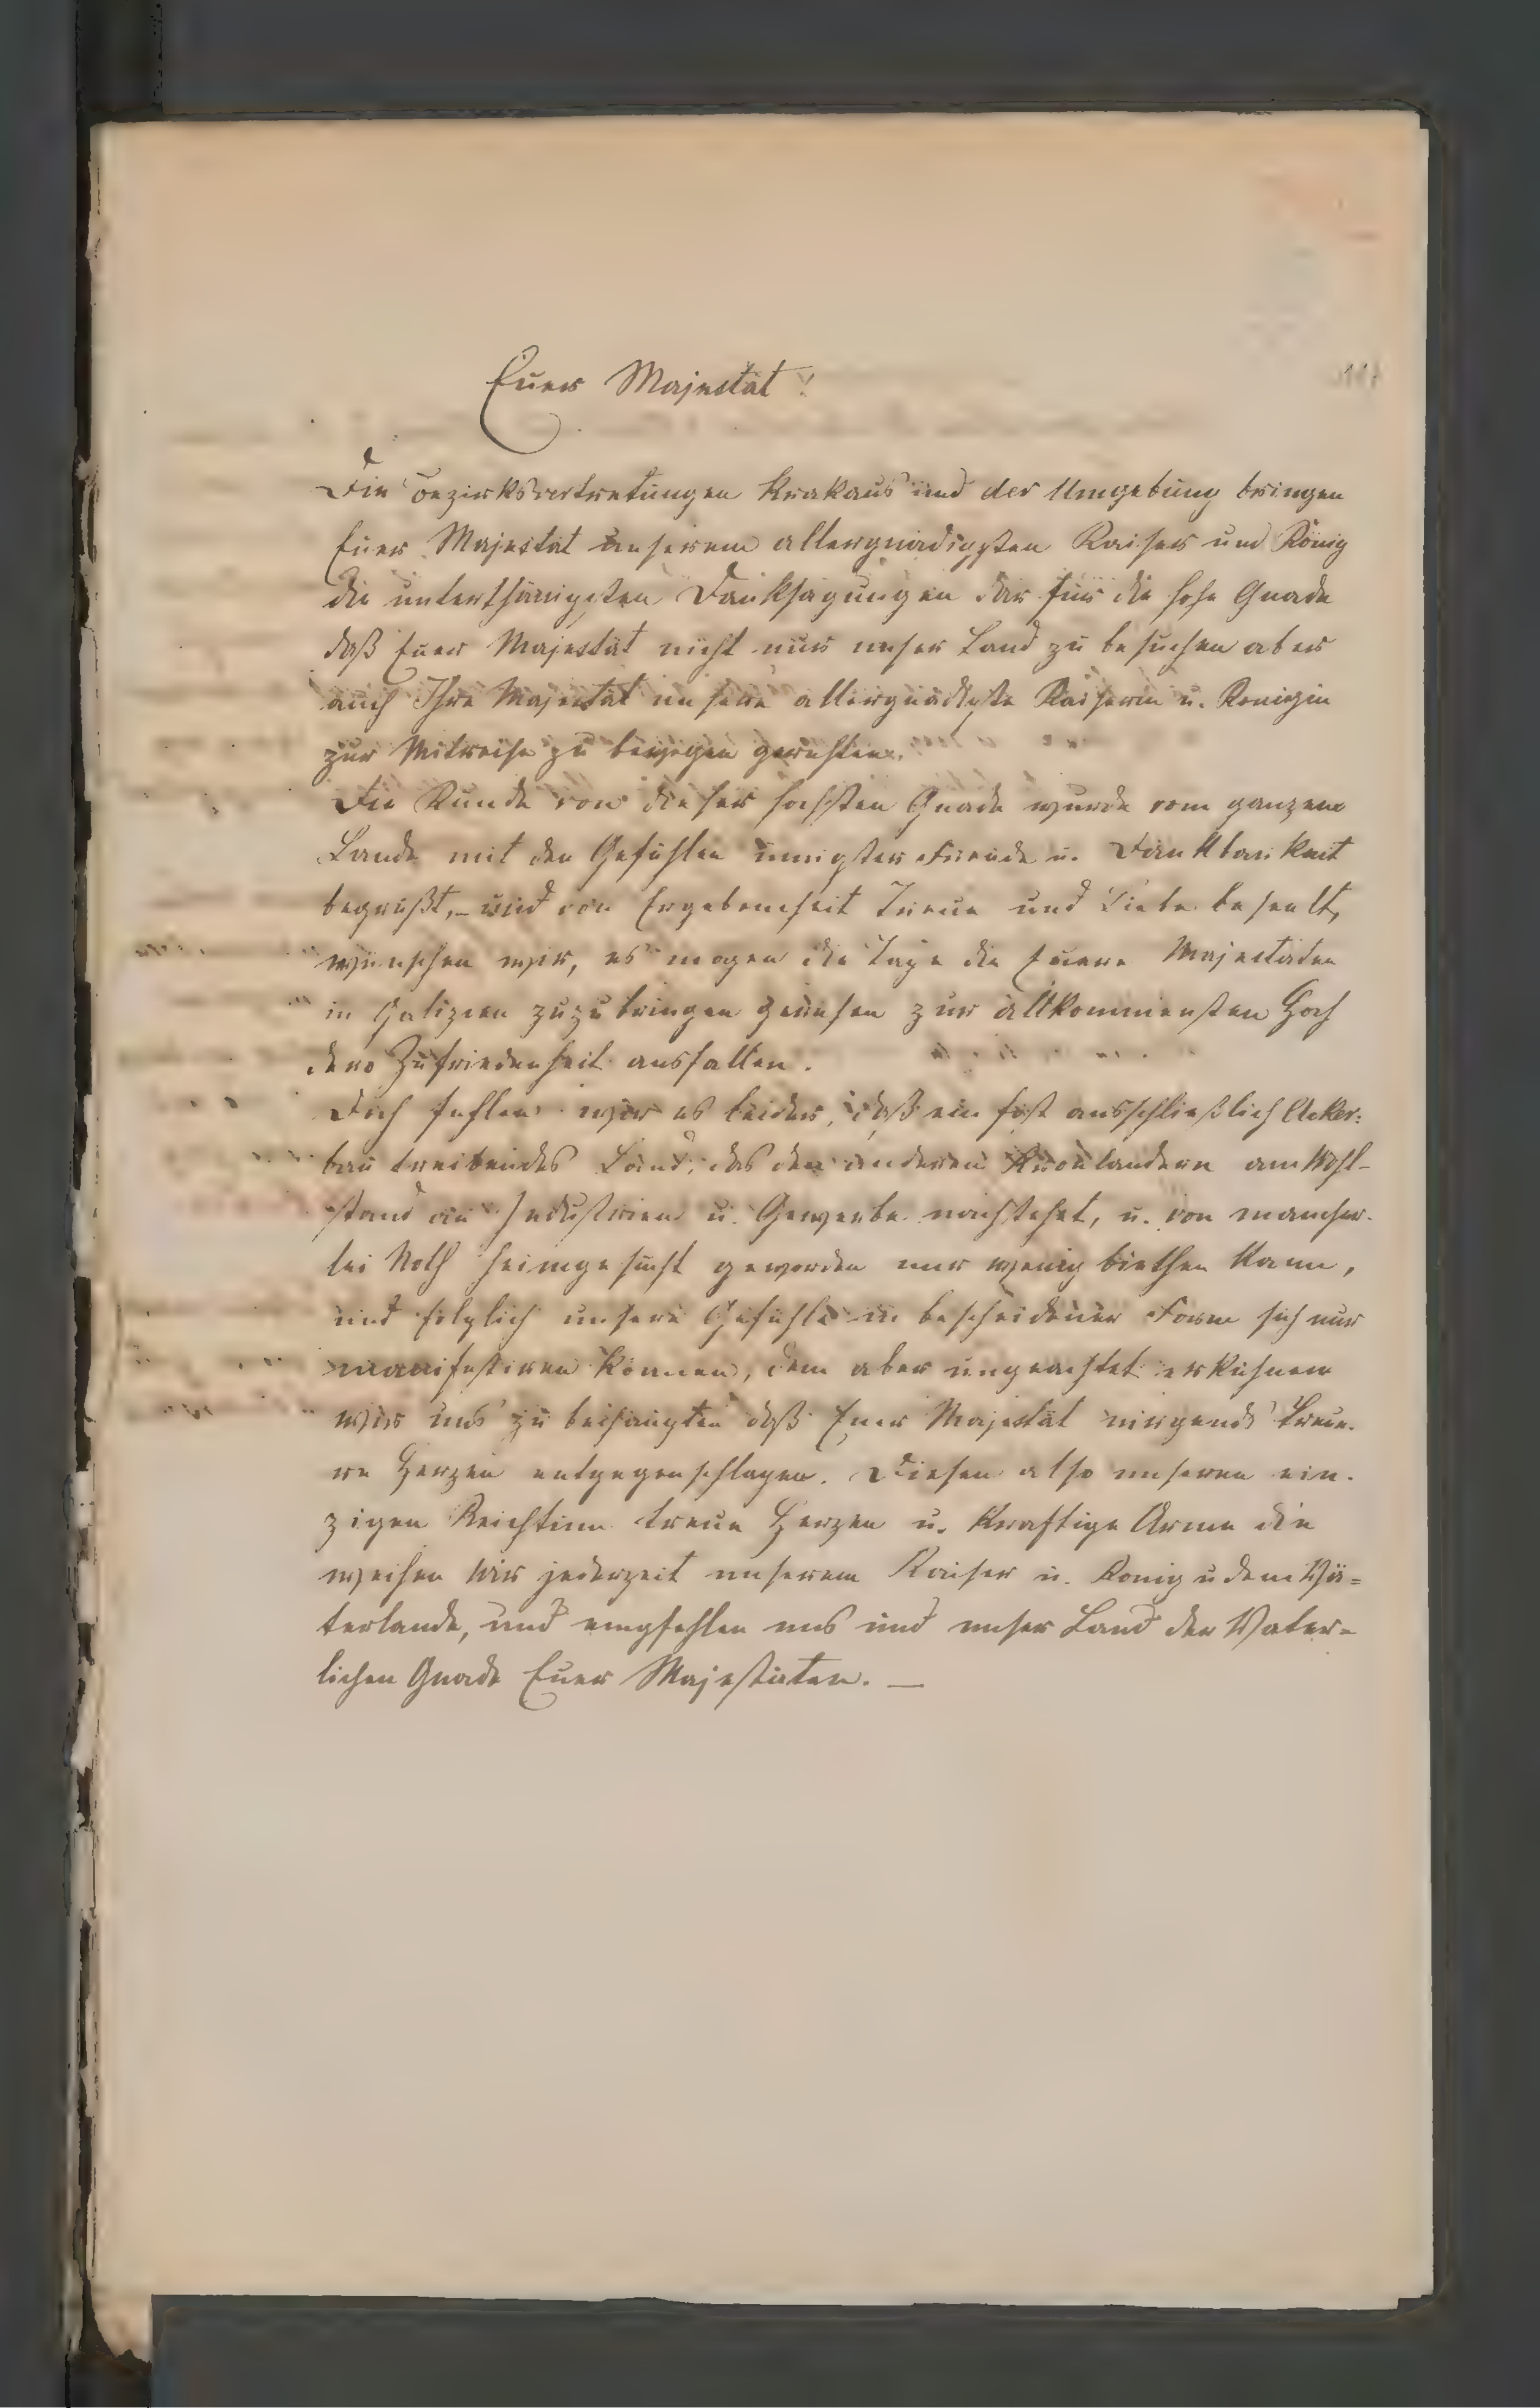 Euer Majestät!
117
Die Bezirksvertretungen Krakaus und der Umgebung bringen
Euer Majestät unserem allergnädigsten Kaiser und König
die unterthänigsten Danksagungen dar für die hohe Gnade
daß Euer Majestät nicht nur unser Land zu besuchen aber
auch Ihre Majestät unsere allergnädigste Kaiserin u. Königin
zur Mitreise zu bewegen geruhten.
Die Kunde von dieser hohsten Gnade wurde vom ganzen
Lande mit den Gefühlen innigster Freude u. Dankbarkeit
begrußt, – und von Ergebenheit Treue und Liebe beseelt,
wünschen wir, es mogen die Tage die Euere Majestäten
in Galizien zuzubringen geruhen zur allkommensten Hoch
dero Zufriedenheit ausfallen.
Doch fuhlen wir es leider, daß ein fast ausschließlich Acker:
bau treibendes Land, das den anderen Kronlandern am Wohl-
stand an Industrien u. Gewerbe nachstehet, u. von mancher-
lei Noth heimgesucht geworden nur wenig biethen kann,
und folglich unsere Gefühle in bescheidener Form sich nur
manifestiren können, dem aber ungeachtet erkuhnen
wir uns zu behaupten daß Euer Majestät nirgends treue-
re Herzen entgegenschlagen. Diesen also unseren ein-
zigen Reichtum treue Herzen u. kraftige Arme die
weihen wir jederzeit unserem Kaiser u. Konig u dem Vä=
terlande, und empfehlen uns und unser Land der Väter=
lichen Gnade Euer Majestäten. —